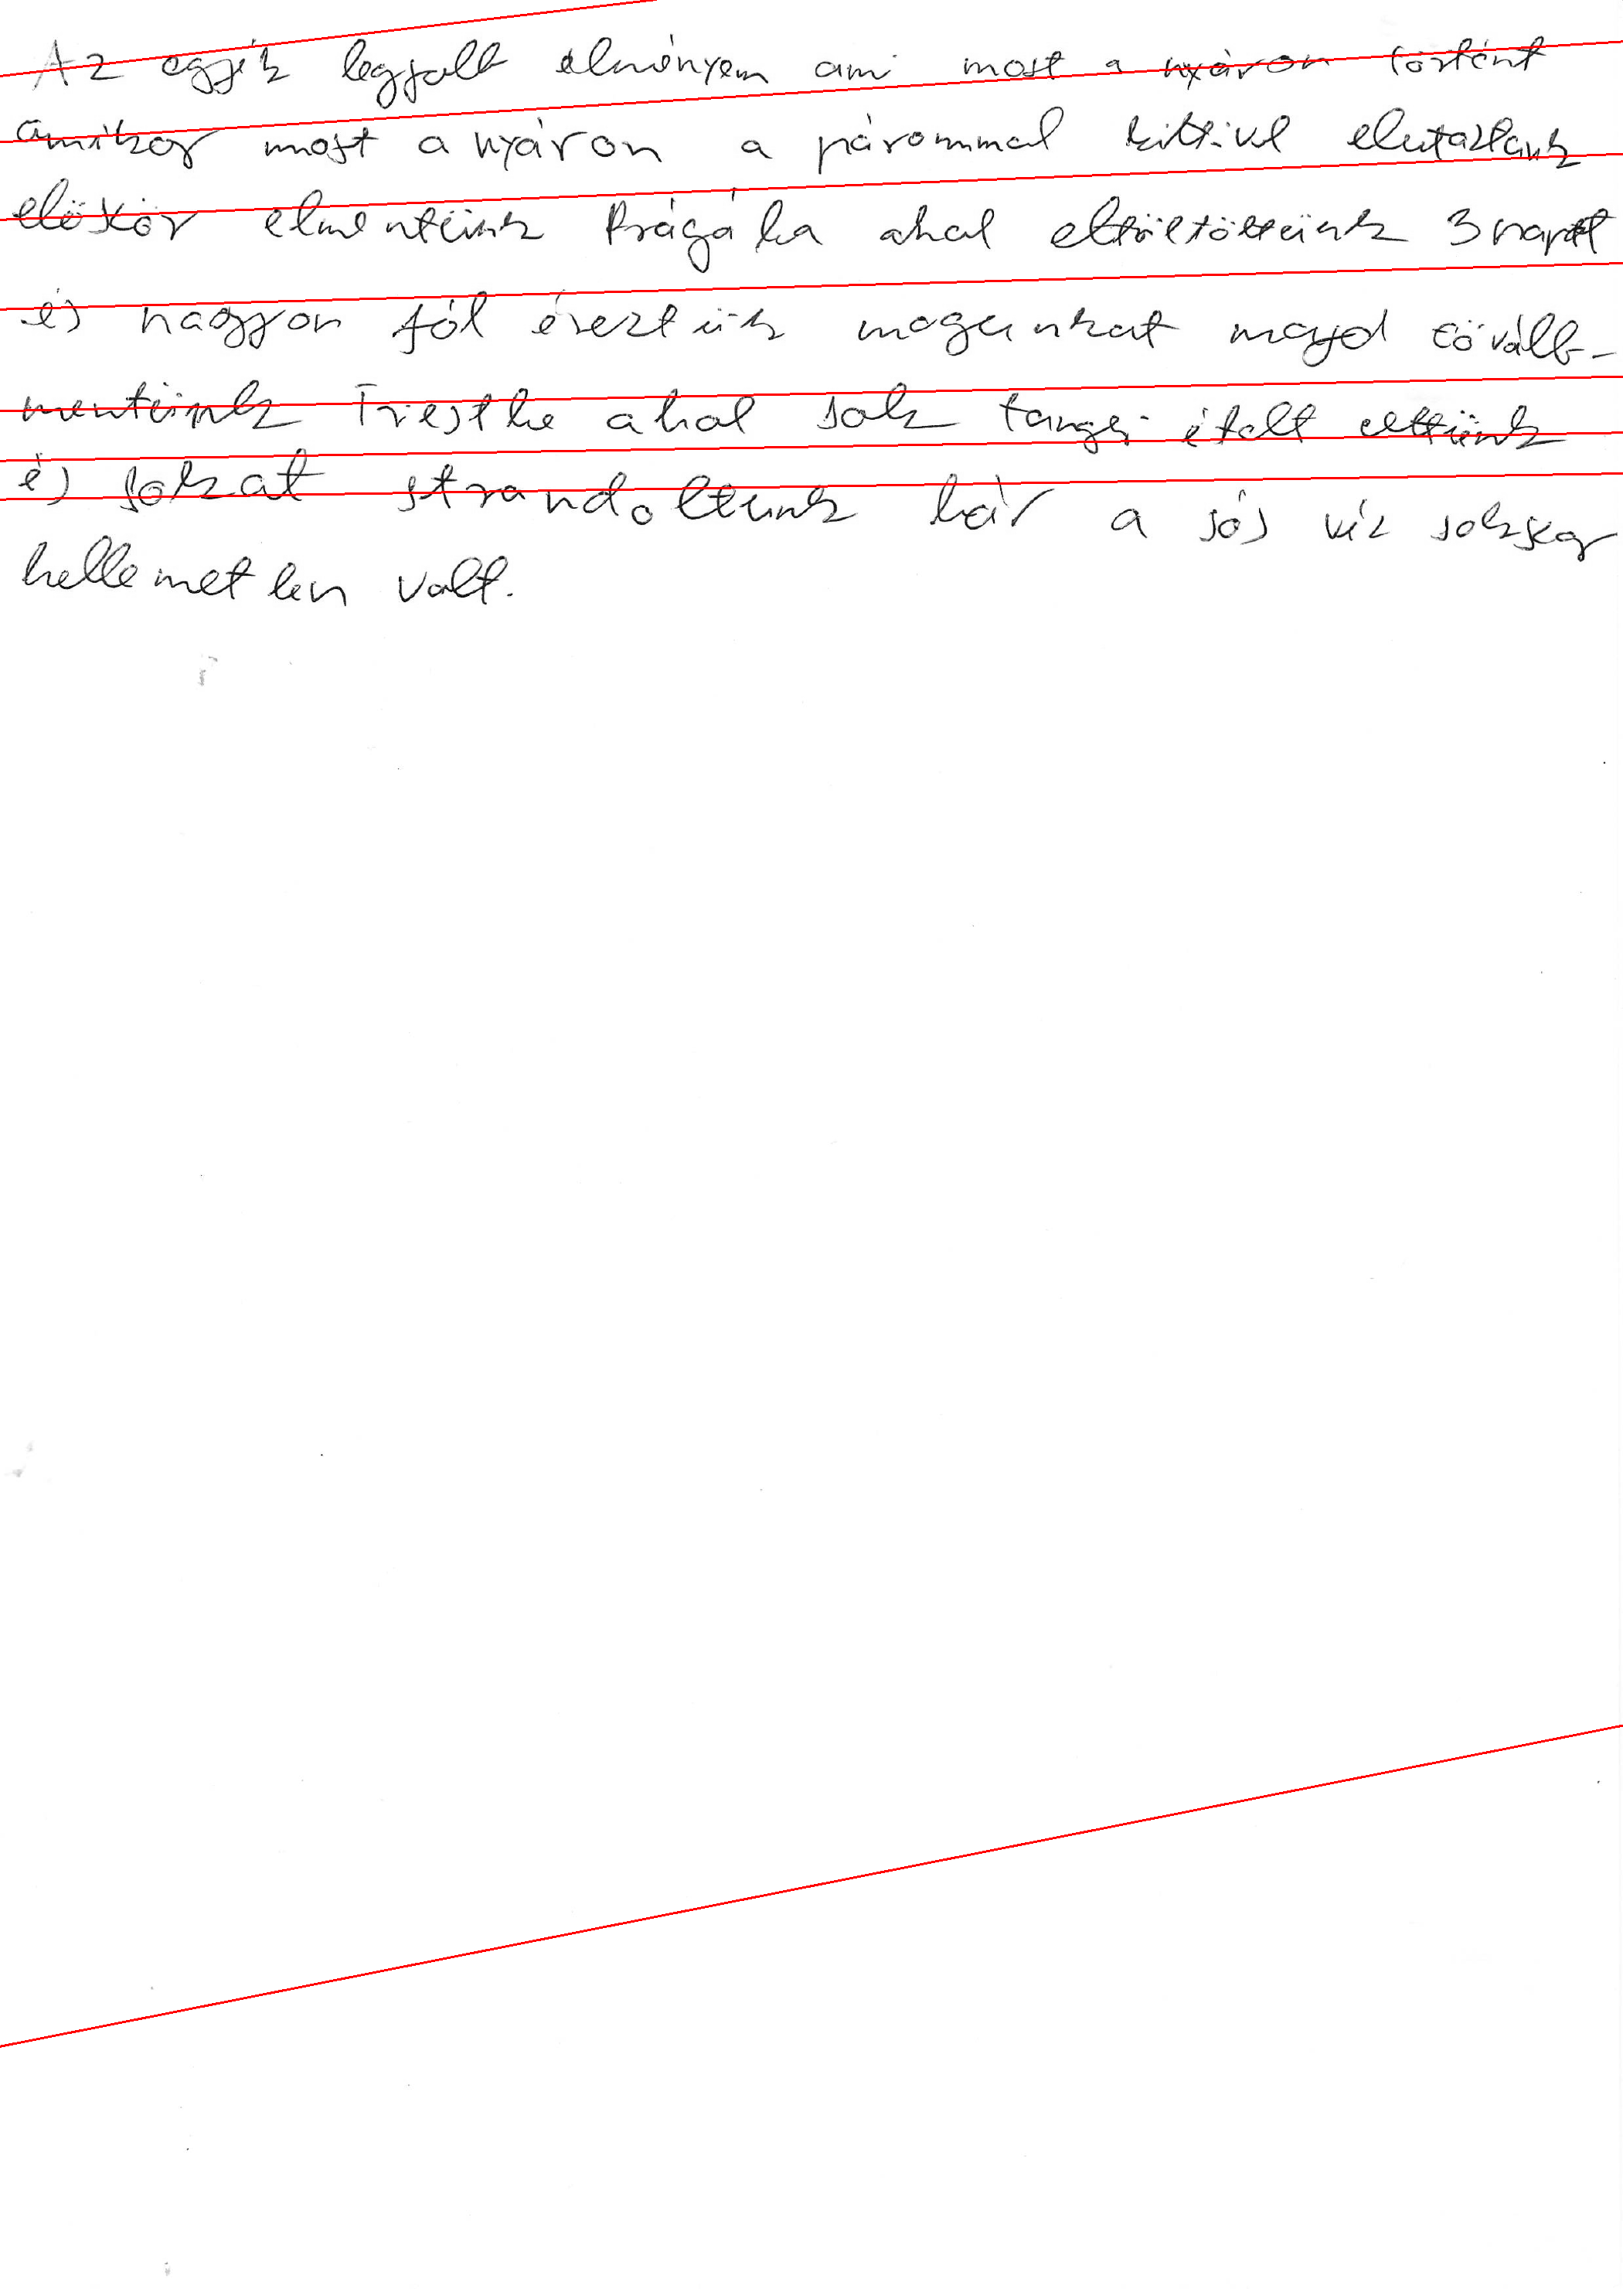 Az egyik legjobb élményem ami most a nyáron történt
amikor most a nyáron a párommal kettívül elutaztunk
elöször elmentünk Prágába ahol eltöltöttünk 3 napot
és nagyon jól éreztük magunkat majd tovább-
mentünk Triestbe ahol sok tengeri ételt ettünk
és sokat strandoltunk bár a sós víz sokszor
kellemetlen volt.